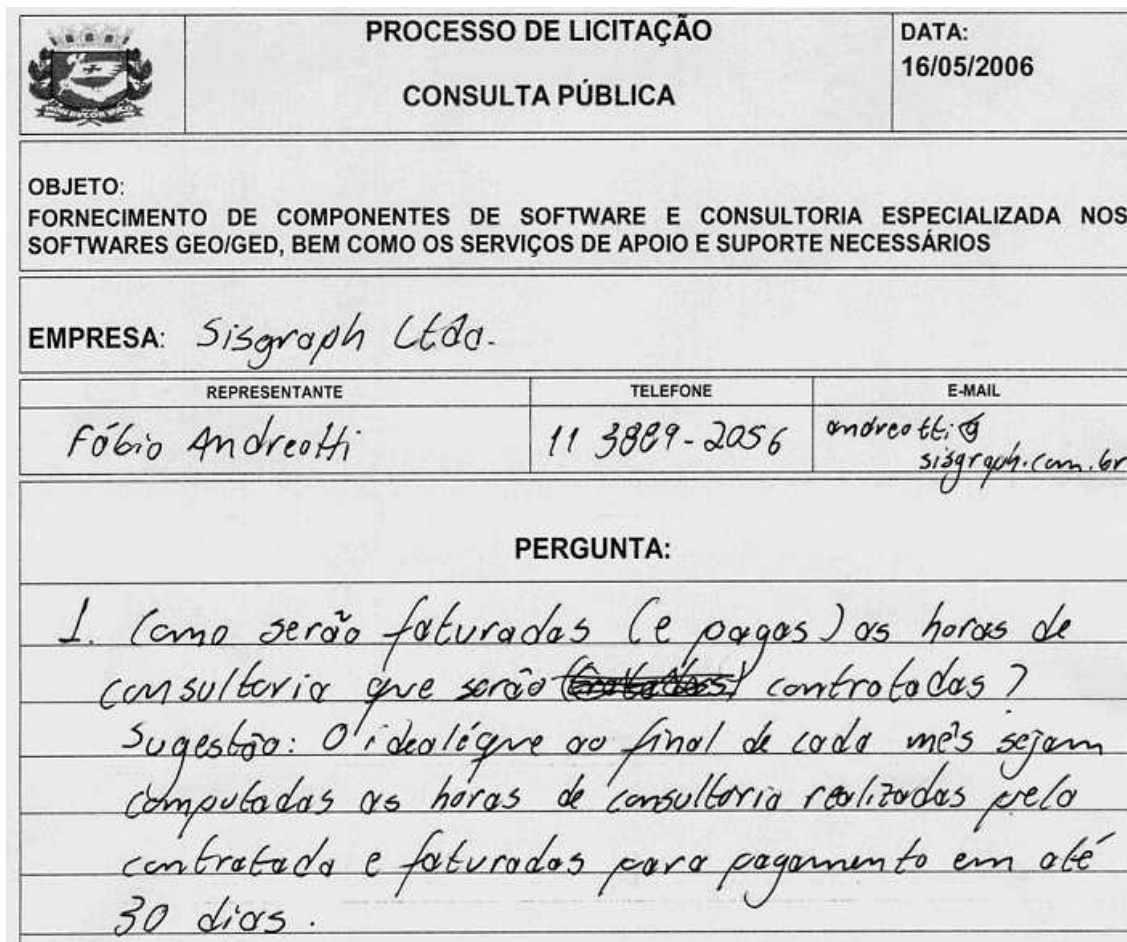 PROCESSO DE LICITAÇÃO
DATA:
16/05/2006
CONSULTA PÚBLICA
OBJETO:
FORNECIMENTO DE COMPONENTES DE SOFTWARE E CONSULTORIA ESPECIALIZADA NOS
SOFTWARES GEO/GED, BEM COMO OS SERVIÇOS DE APOIO E SUPORTE NECESSÁRIOS
EMPRESA: Sisgraph Ltda.
REPRESENTANTE TELEFONE E-MAIL
Fábio Andreotti 11 3889-2056 andreotti@
sisgraph.com.br
PERGUNTA:
1. Como serão faturadas (e pagas) as horas de
consultoria que serão contratadas?
Sugestão: O ideal é que ao final de cada mês sejam
computadas as horas de consultoria realizadas pela
contratada e faturadas para pagamento em até
30 dias.